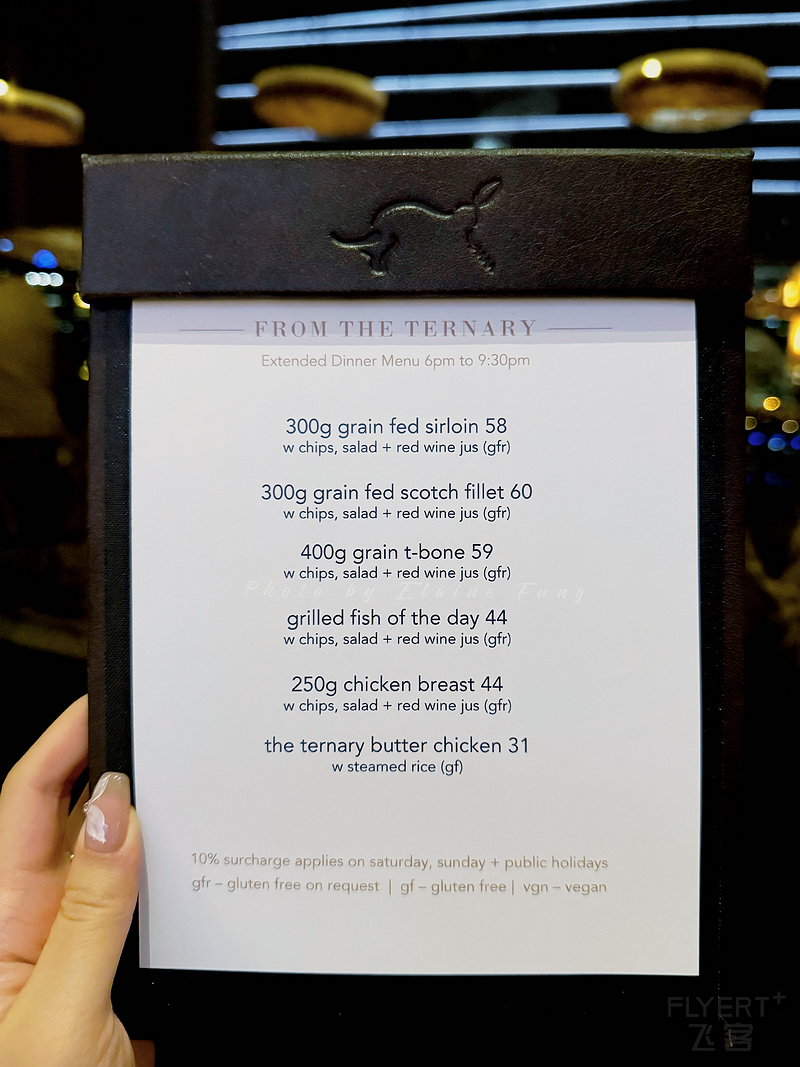 FROM THE TERNARY
Extended Dinner Menu 6pm to 9:30pm
300g grain fed sirloin 58
w chips, salad + red wine jus (gfr)
300g grain fed scotch fillet 60
w chips, salad + red wine jus (gfr)
400g grain t-bone 59
w chips, salad + red wine jus (gfr)
Photo by Elaine Fung
grilled fish of the day 44
w chips, salad + red wine jus (gfr)
250g chicken breast 44
w chips, salad + red wine jus (gfr)
the ternary butter chicken 31
w steamed rice (gf)
10% surcharge applies on saturday, sunday + public holidays
gfr – gluten free on request | gf – gluten free | vgn – vegan
FLYERT+
飞客